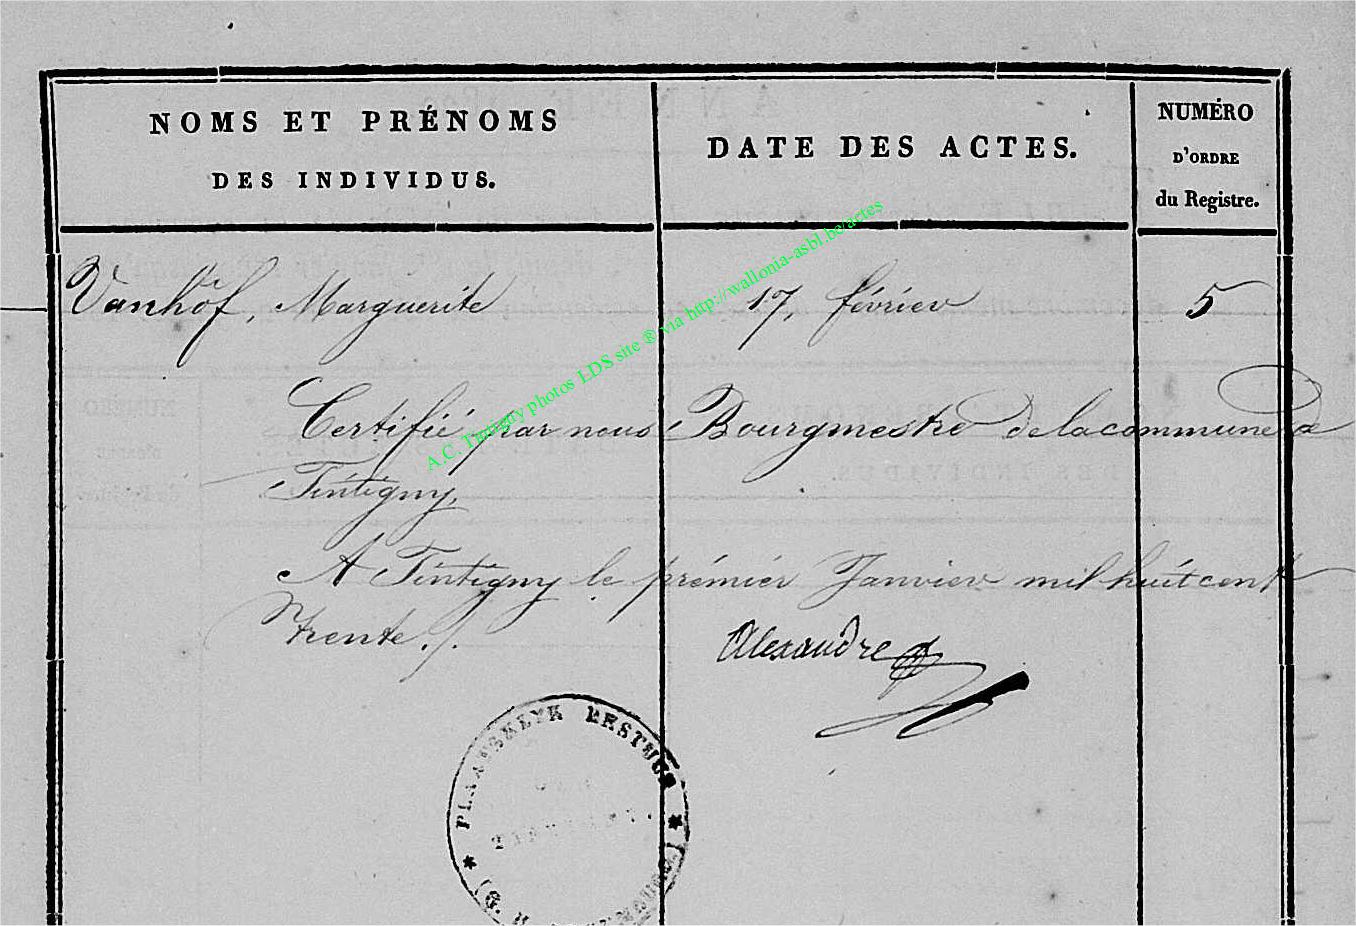 NOMS ET PRÉNOMS
DES INDIVIDUS.
DATE DES ACTES.
NUMÉRO
D'ORDRE
du Registre.
Vanhof, Marguerite
17, février
5
Certifié par nous Bourgmestre de la commune de
Tintigny,
A Tintigny le prémiér Janvier mil huit cent
trente ./.
Alexandre
A.C. Tintigny photos LDS site ® via http://wallonia-asbl.be/actes
PLAATSELYK BESTUUR